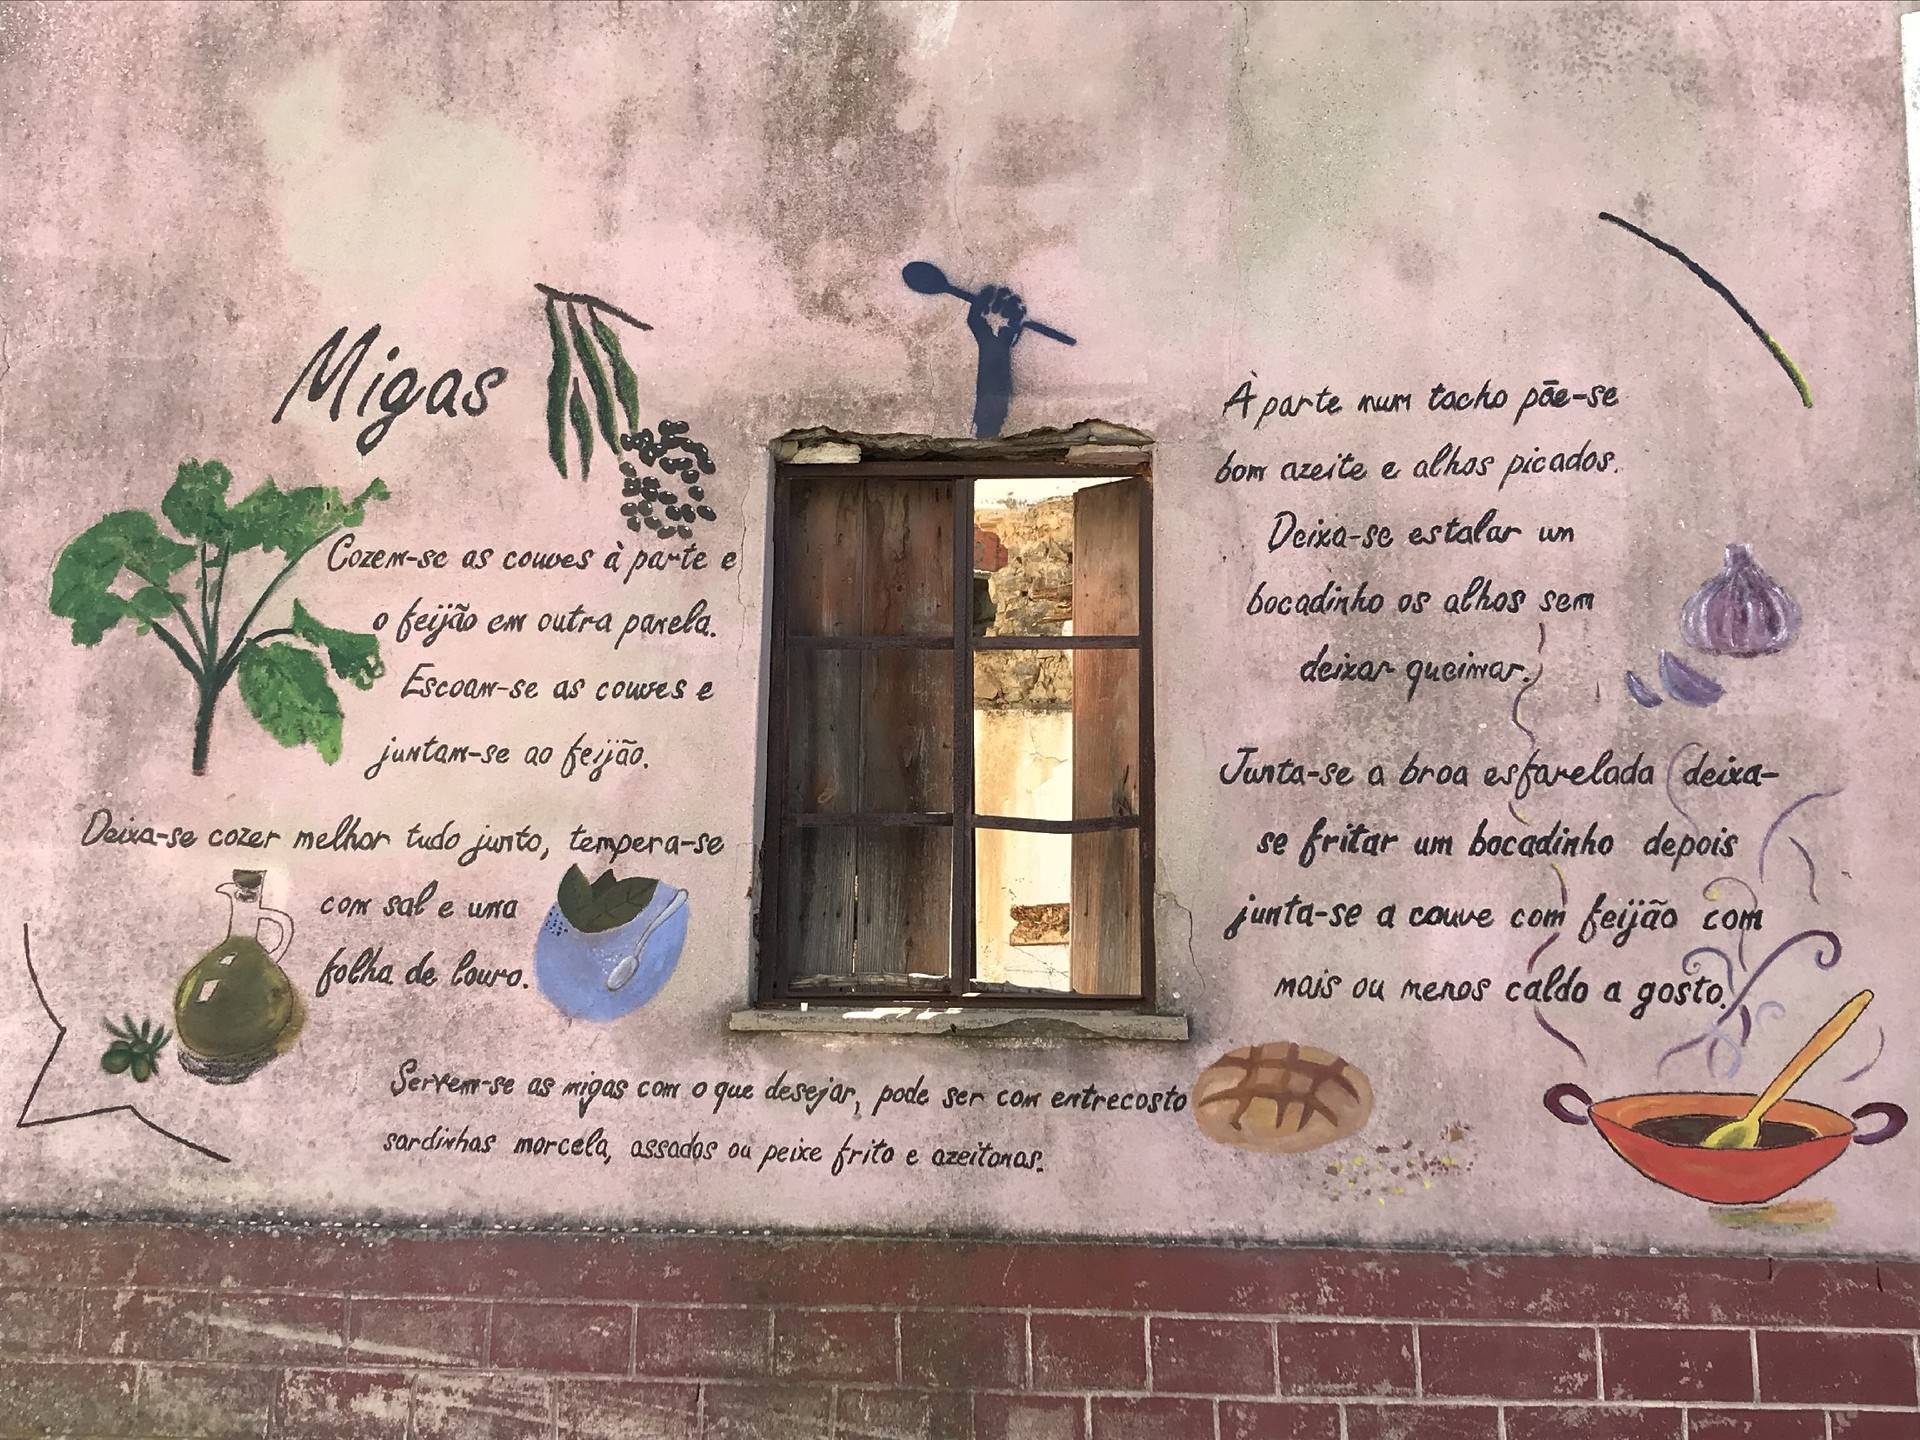 Migas
Cozem-se as couves à parte e
o feijão em outra panela.
Escoam-se as couves e
juntam-se ao feijão.
Deixa-se cozer melhor tudo junto, tempera-se
com sal e uma
folha de louro.
À parte num tacho põe-se
bom azeite e alhos picados.
Deixa-se estalar um
bocadinho os alhos sem
deixar queimar.
Junta-se a broa esfarelada deixa-
se fritar um bocadinho depois
junta-se a couve com feijão com
mais ou menos caldo a gosto.
Servem-se as migas com o que desejar, pode ser com entrecosto
sardinhas morcela, assados ou peixe frito e azeitonas.